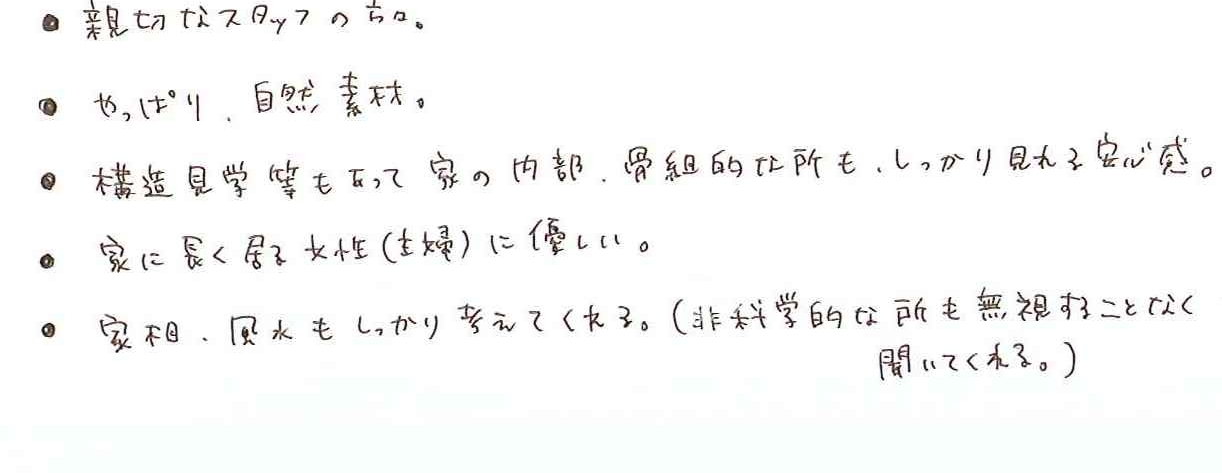 ● 親切なスタッフの方々。
● やっぱり、自然素材。
● 構造見学等もあって家の内部、骨組的な所も、しっかり見れる安心感。
● 家に長く居る女性(主婦)に優しい。
● 家相、風水もしっかり考えてくれる。(非科学的な所も無視することなく
聞いてくれる。)